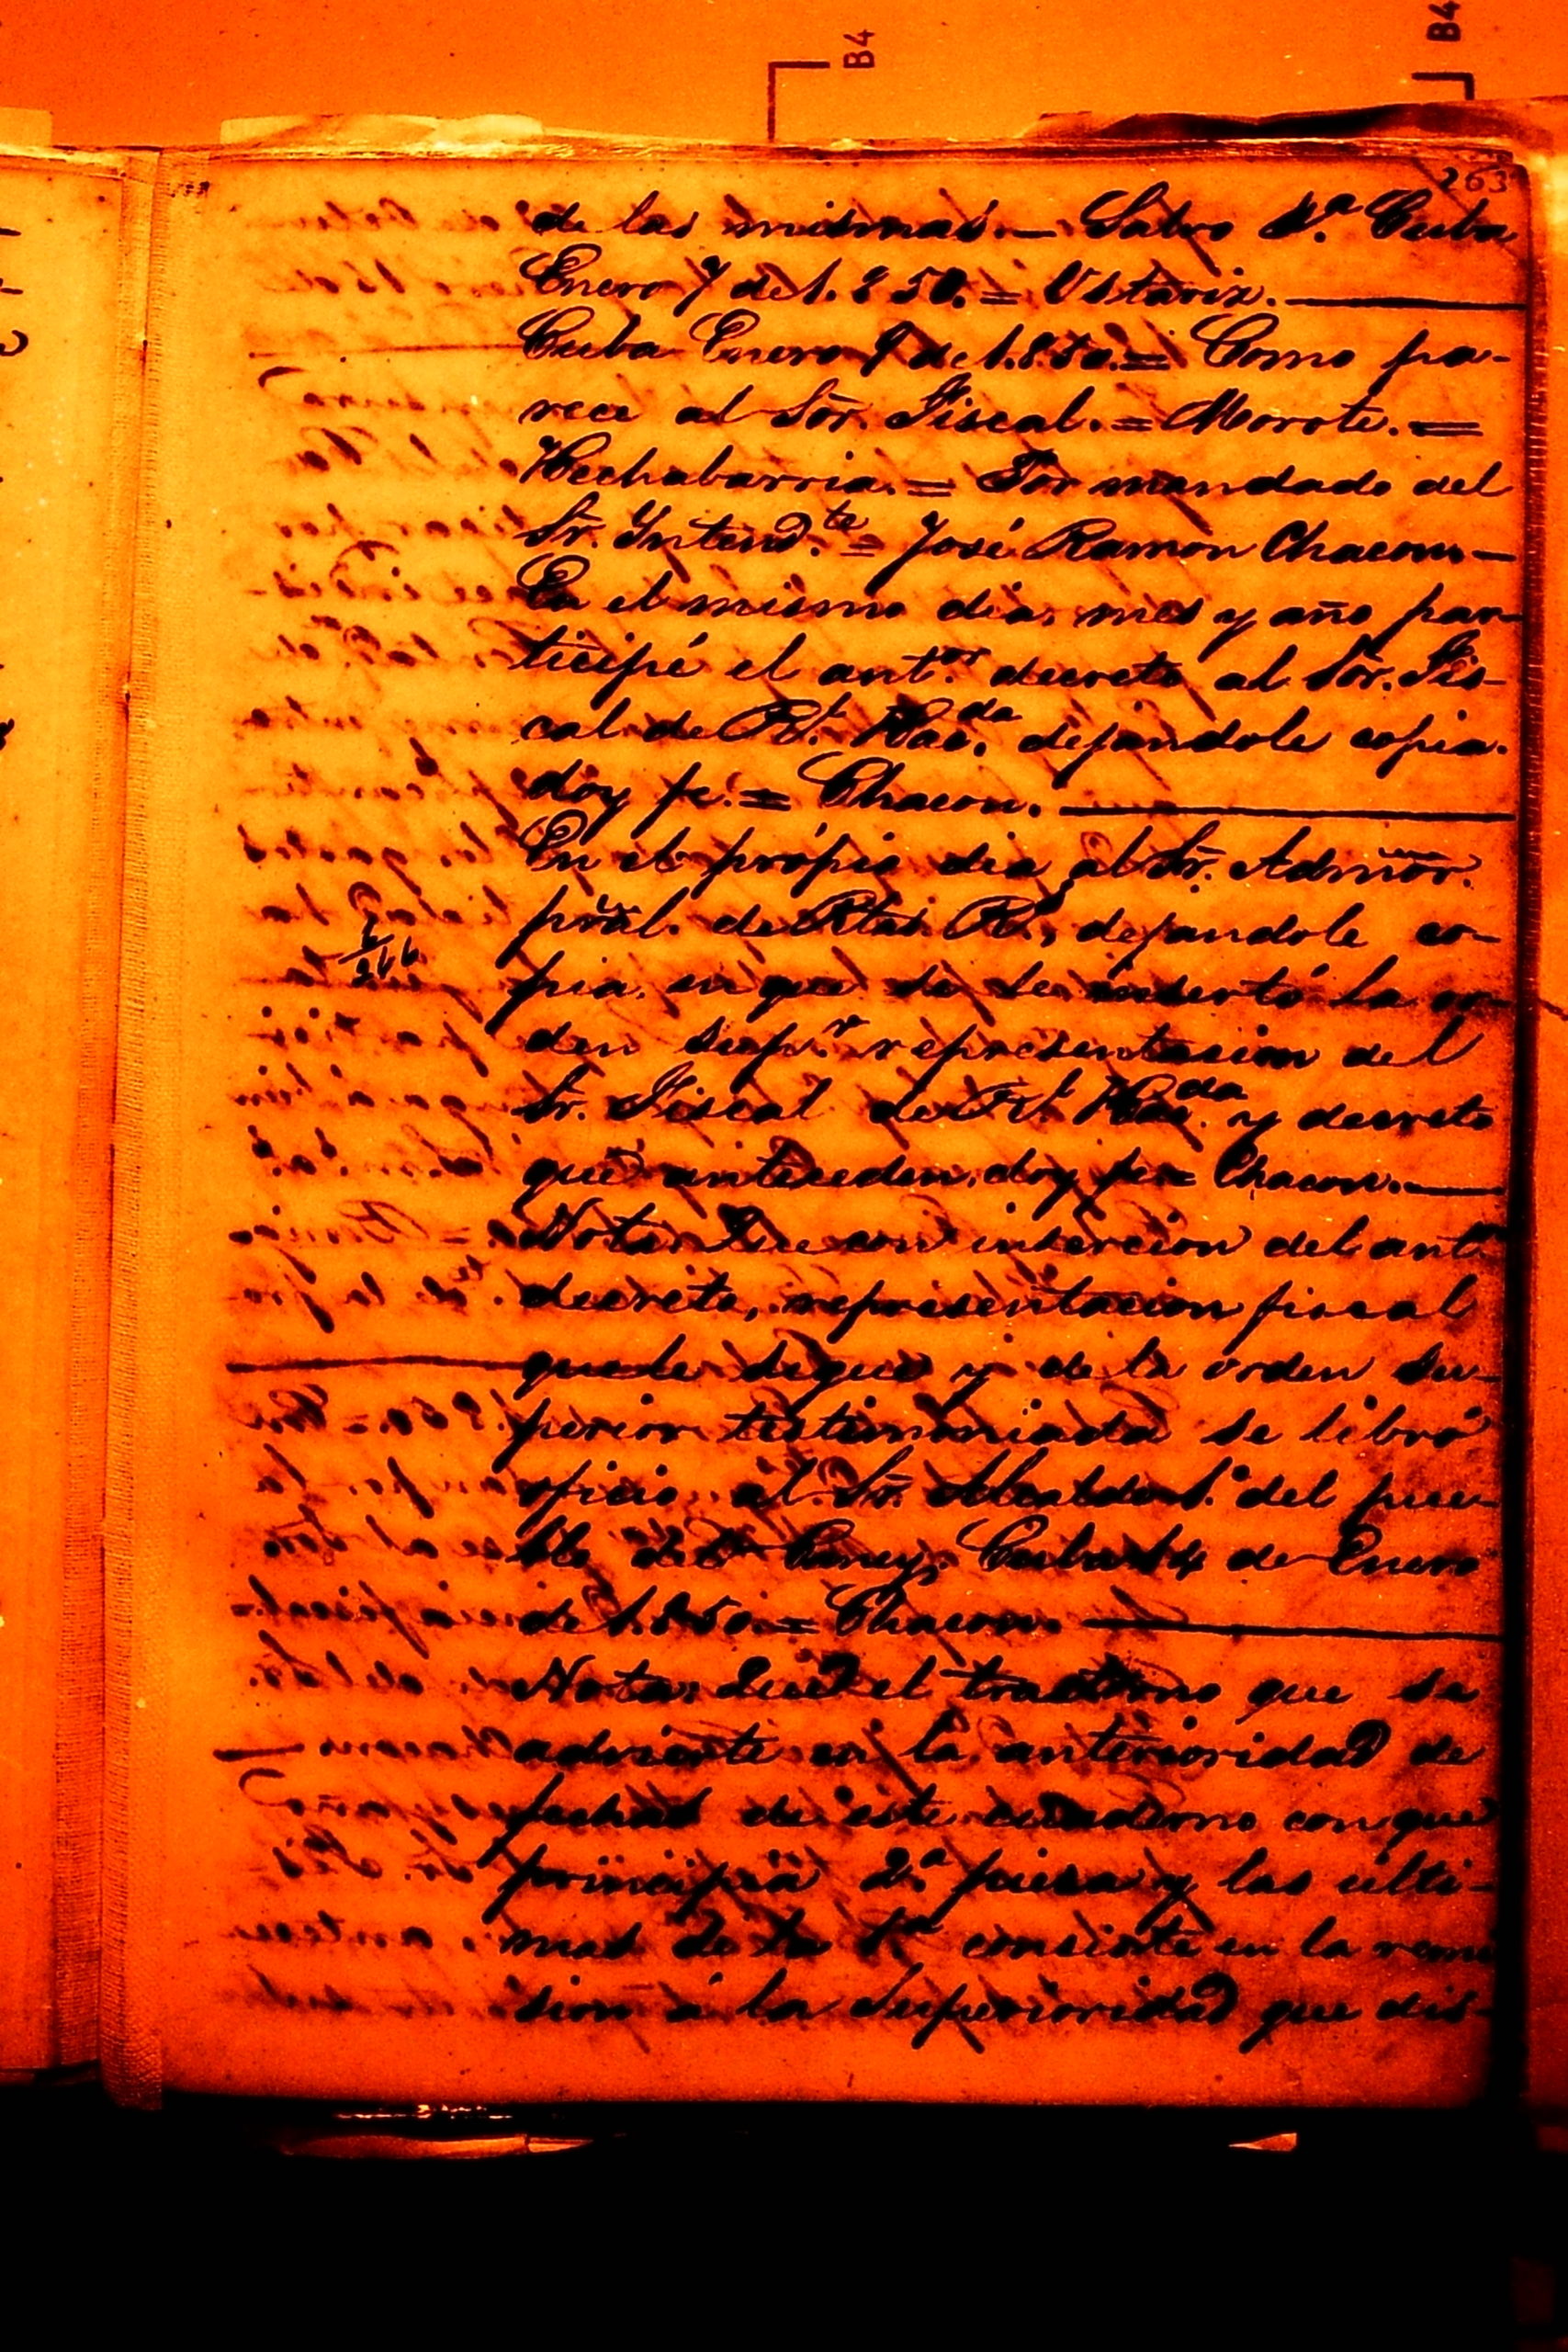 B4
B4
263
de las mismas.— Salvo &.ª Cuba
Enero 7 de 1.850. = Ustariz.
Cuba Enero 9 de 1.850. = Como pa-
rece al Sõr. Fiscal. = Morote. =
Hechabarria. = Por mandado del
Sr. Yntend.te = José Ramon Chacon —
En el mismo dia, mes y año par-
ticipé el ant.or decreto al Sõr. Fis-
cal de Rl. Hac.da dejandole copia.
doy fe. = Chacon.
En el própio dia al Sr. Admõr.
prãl. de Rtas R.s, dejandole co-
pia en que se le insertó la or-
den sup.r representacion del
Sr. Fiscal de Rl. Hac.da y decreto
que anteceden. doy fe = Chacon.
Nota. Que con insercion del ant.or
decreto, representacion fiscal
que le sigue y de la orden su-
perior testimoniada se libró
oficio al Sr. Alcalde 1.º del pue-
blo del Caney, Cuba 14 de Enero
de 1.850. = Chacon.
Nota. Que el trastorno que se
advierte en la anterioridad de
fechas de este cuaderno con que
principia 2.ª pieza y las ulti-
mas de la 1.ª consiste en la remi
sion á la Superioridad que dis-